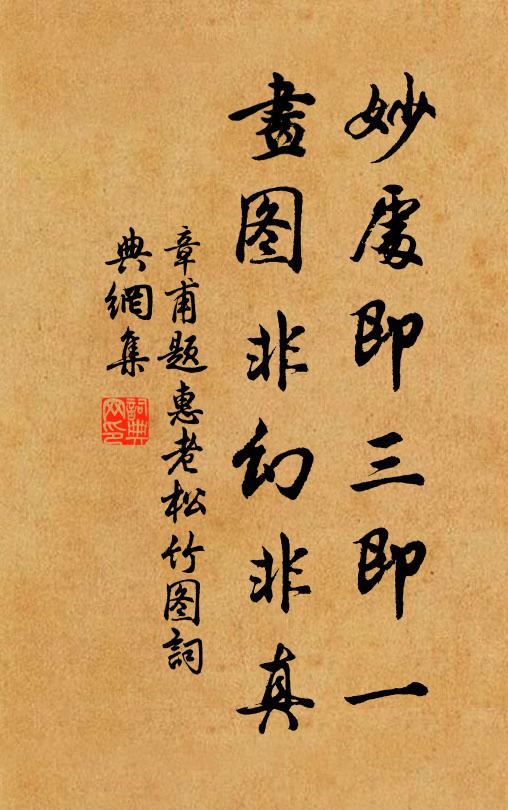 妙處即三即一
畫图非幻非真
章甫題惠老松竹图詞
典網集
詞典網印